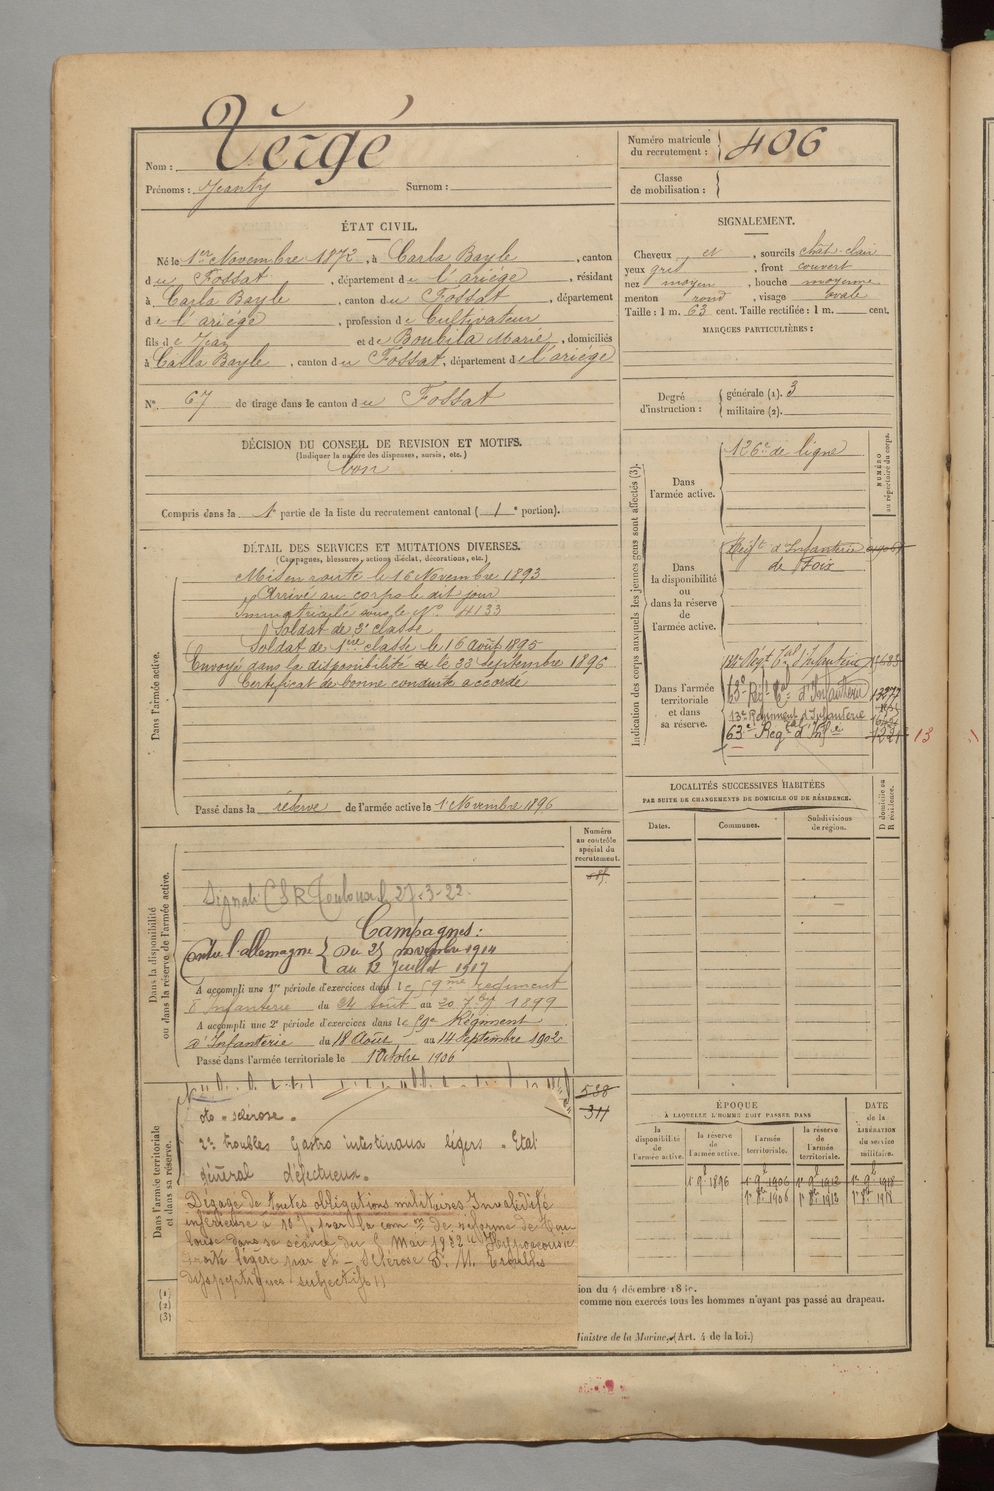 Nom : Vergé
Prénoms : Jeanty Surnom :
Numéro matricule du recrutement : 406
Classe de mobilisation :
ÉTAT CIVIL.
Né le 1er Novembre 1872, à Carla Bayle, canton
du Fossat, département de l'ariége, résidant
à Carla Bayle, canton du Fossat, département
de l'ariége, profession de Cultivateur
fils de Jean et de Boubila Marie, domiciliés
à Carla Bayle, canton du Fossat, département de l'ariége
N° 67 de tirage dans le canton du Fossat
SIGNALEMENT.
Cheveux et, sourcils chât-clair
yeux gris, front couvert
nez moyen, bouche moyenne
menton rond, visage ovale
Taille : 1 m. 63 cent. Taille rectifiée : 1 m. cent.
MARQUES PARTICULIÈRES :
Degré d'instruction : générale (1). 3
militaire (2).
DÉCISION DU CONSEIL DE REVISION ET MOTIFS.
(Indiquer la nature des dispenses, sursis, etc.)
bon
Compris dans la 1e partie de la liste du recrutement cantonal (1e portion).
DÉTAIL DES SERVICES ET MUTATIONS DIVERSES.
(Campagnes, blessures, actions d'éclat, décorations, etc.)
Dans l'armée active.
Mis en route le 16 Novembre 1893
Arrivé au corps le dit jour
Immatriculé sous le N° 4133
Soldat de 2e classe
Soldat de 1ère classe le 16 août 1895
Envoyé dans la disponibilité le 23 Septembre 1896
Certificat de bonne conduite accordé
Passé dans la réserve de l'armée active le 1 Novembre 1896
Indication des corps auxquels les jeunes gens sont affectés (3).
NUMÉRO au répertoire du corps.
Dans l'armée active.
126e de ligne
Dans la disponibilité ou dans la réserve de l'armée active.
Régt d'Infanterie
de Foix
Dans l'armée territoriale et dans sa réserve.
Régt Tal d'Infanterie
63e Regt Tal d'Infanterie
13e Regiment d'Infanterie
63e Regt d'Infie
13
LOCALITÉS SUCCESSIVES HABITÉES
PAR SUITE DE CHANGEMENTS DE DOMICILE OU DE RÉSIDENCE.
Dates. Communes. Subdivisions de région. D domicile ou R résidence.
Numéro au contrôle spécial du recrutement.
Dans la disponibilité ou dans la réserve de l'armée active.
Signalé CSR Toulouse 27-3-22.
Campagnes :
Contre l'allemagne Du 25 novembre 1914
au 12 Juillet 1917
A accompli une 1re période d'exercices dans le 59me régiment
d'Infanterie du 24 août au 20 7bre 1899
A accompli une 2e période d'exercices dans le 59e Régiment
d'Infanterie du 18 Août au 14 Septembre 1902
Passé dans l'armée territoriale le 1 Octobre 1906
Dans l'armée territoriale et dans sa réserve.
538
311
oto-sclérose.
2° troubles Gastro intestinaux légers. Etat
général défectueux.
Dégagé de toutes obligations militaires Invalidité
inférieure à 10% par la comon de réforme de Tou
louse dans sa séance du Mai 1922 Hypoacousie
droite légère par oto-Sclérose Troubles
dyspeptiques subjectifs
ÉPOQUE
À LAQUELLE L'HOMME DOIT PASSER DANS
la disponibilité de l'armée active. la réserve de l'armée active. l'armée territoriale. la réserve de l'armée territoriale.
DATE de la LIBÉRATION du service militaire.
1er 9e 1896 1er 9e 1906 1er 9e 1912 1er 9e 1918
1er 8bre 1906 1er 8bre 1912 1er 8bre 1918
(1)
(2)
(3)
ion du 4 décembre 18
comme non exercés tous les hommes n'ayant pas passé au drapeau.
Ministre de la Marine. (Art. 4 de la loi.)